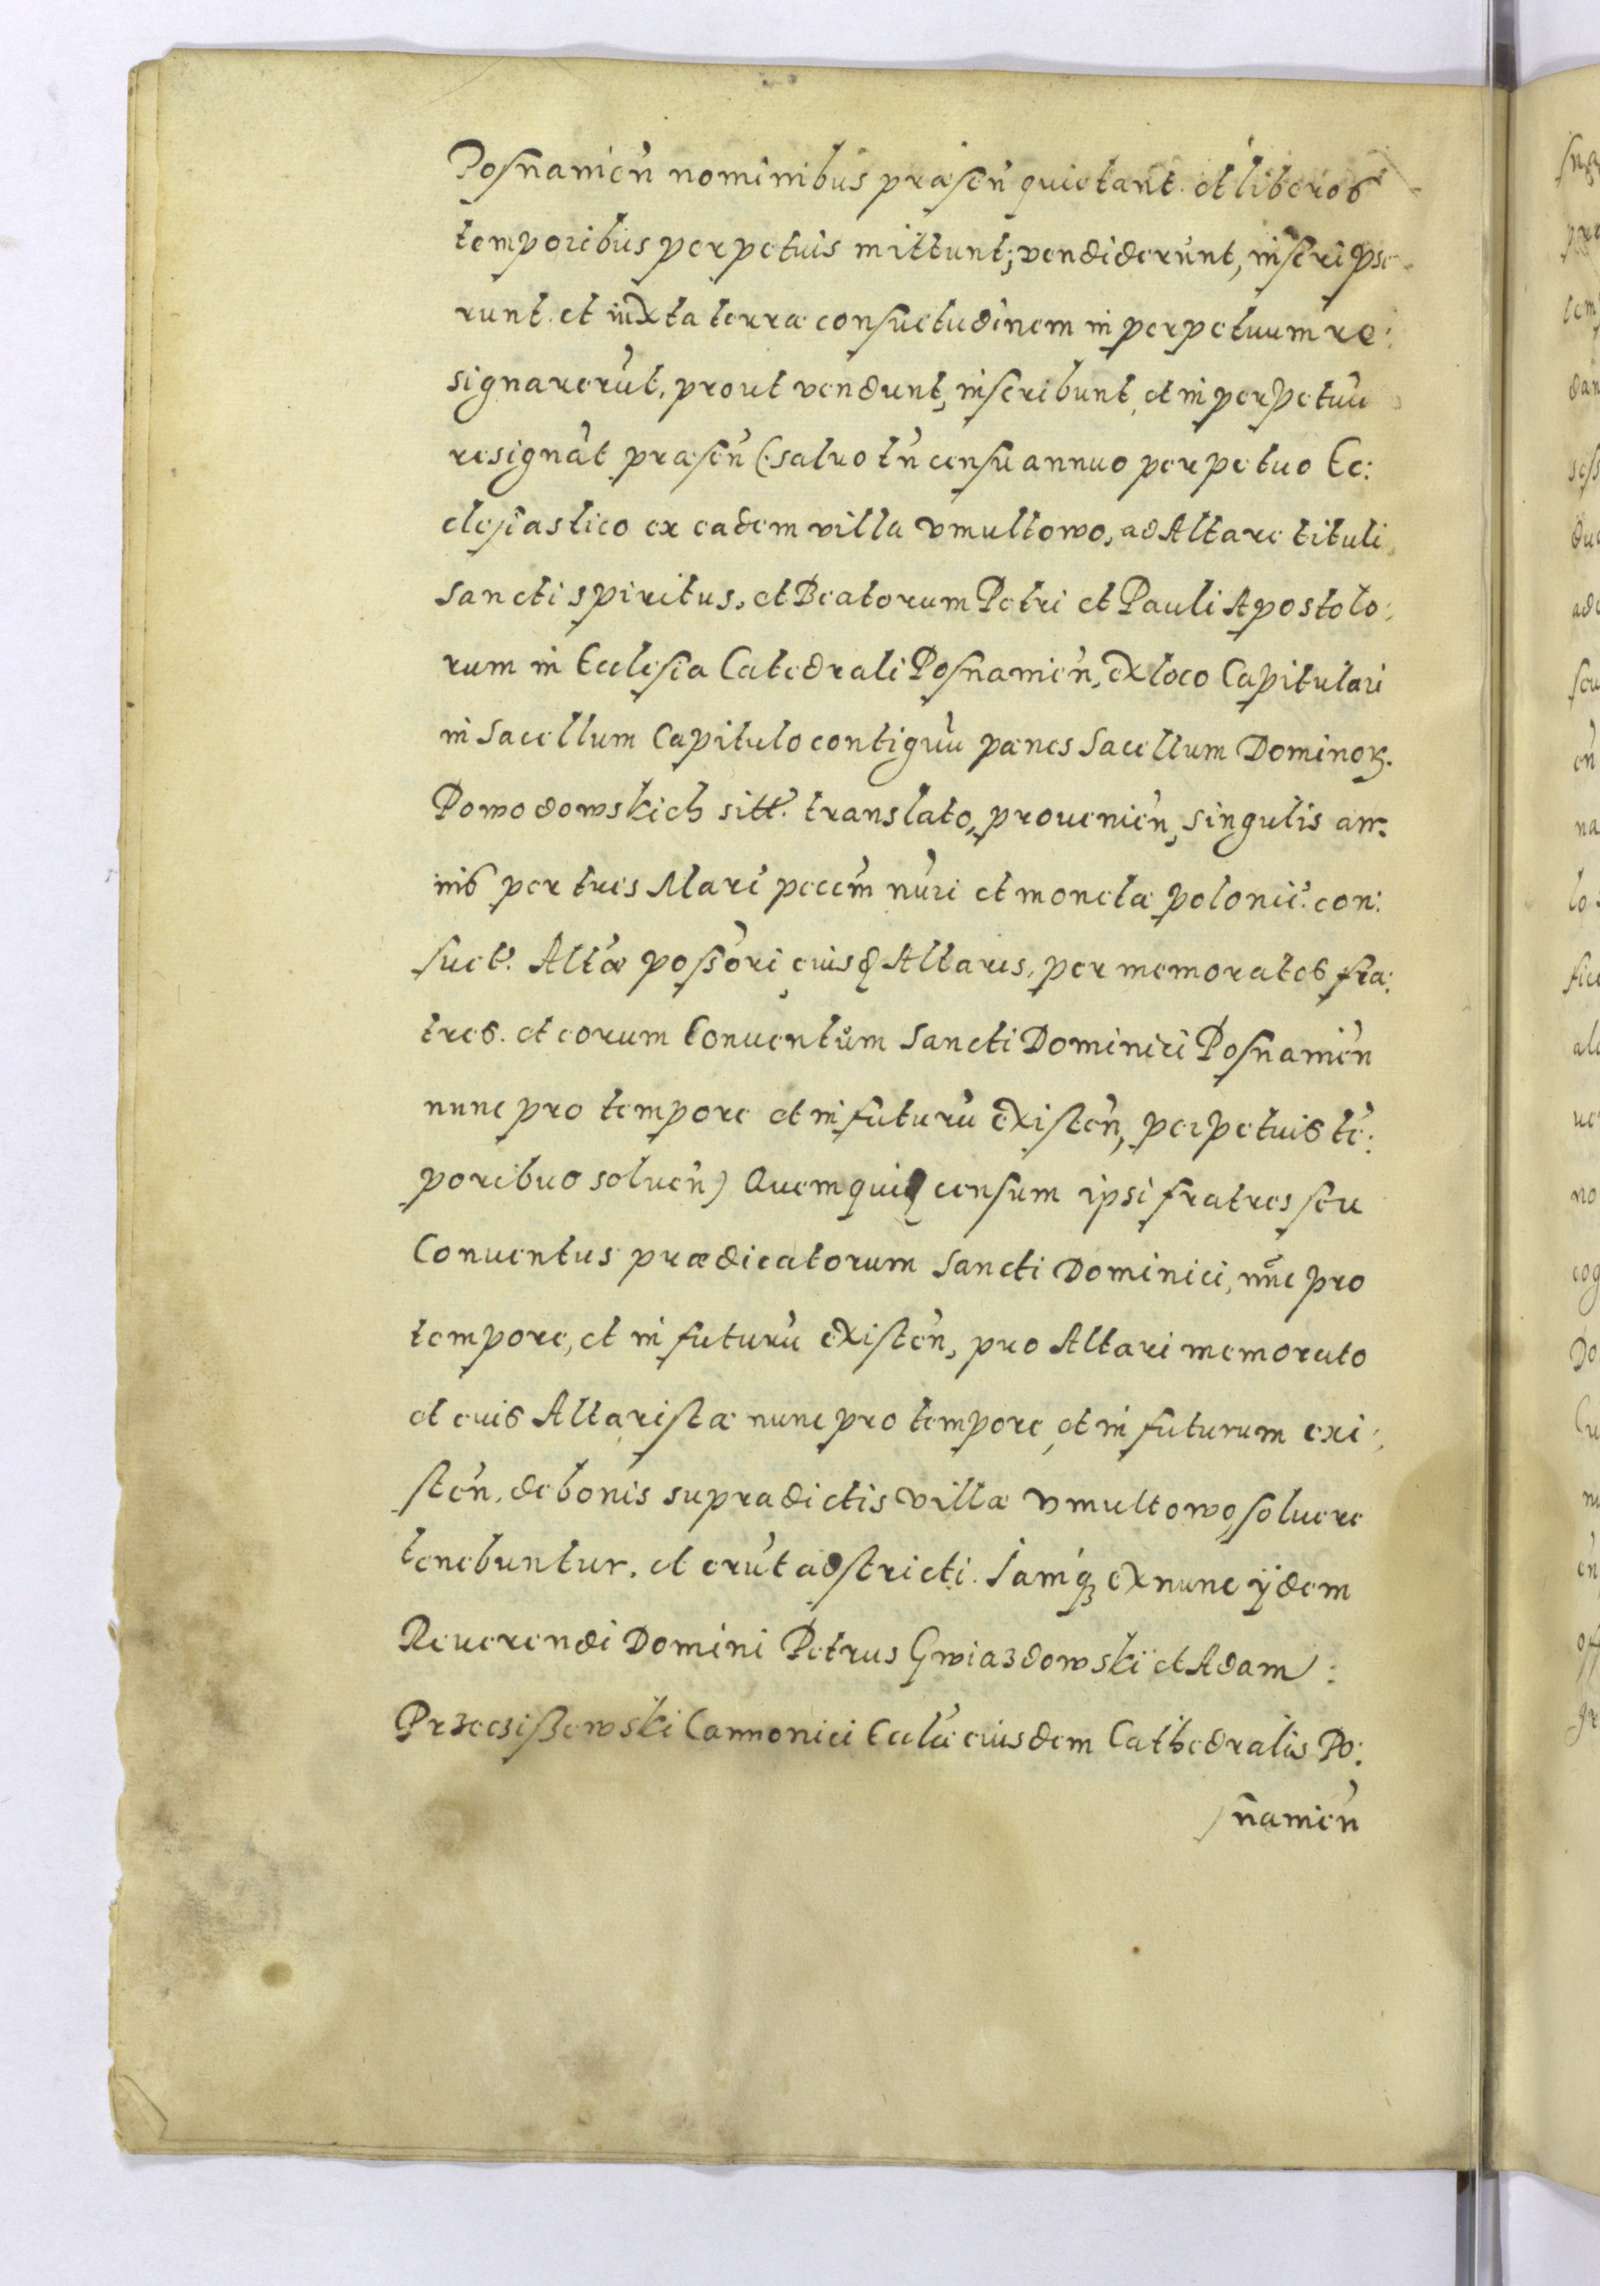 Posnanień nominibus præseń quietant et liberos
temporibus perpetuis mittunt; vendiderunt, inscripse
runt et iuxta terræ consuetudinem in perpetuum re:
signarerūt, prout vendunt, inscribunt, et in perpetuū
resignāt præseń (salvo tń censu annuo perpetuo Ec:
clesiastico ex eadem villa Vmultowo, ad Altare tituli
sancti spiritus, et Beatorum Petri et Pauli Apostolo:
rum in Ecclesia Catedrali Posnamień, ex loco Capitulari
in Sacellum Capitulo contiguū pænes Sacellum Dominoꝝ.
Powodowskich sitt. translato, provenień, singulis an:
nis per tres Marc pecem nūri et monetæ polonic. con:
suet. Altæ possori eiusd Altaris, per memoratos fra:
tres. et eorum Conventum Sancti Dominici Posnanień
nunc pro tempore et in futurū existeń, perpetuis tē:
poribus solveń) Quem quid censum ipsi fratres seu
Conventus prædicatorum Sancti Dominici, nūc pro
tempore, et in futurū existeń, pro Altari memorato
et euis Altaristæ nunc pro tempore, et in futurum exi:
steń, de bonis supradictis villæ Vmultowo, solvere
tenebuntur. et erūt adstricti. Jamqꝫ ex nunc ijdem
Reverendi Domini Petrus Gwiazdowski et Adam:
Przeczißewski Cannonici Ecclæ eiusdem Cathedralis Po:
snamień